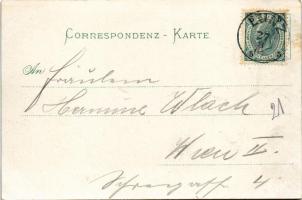 CORRESPONDENZ - KARTE.
An Fräulein
Hermine Wlach
21
Wien II.
4